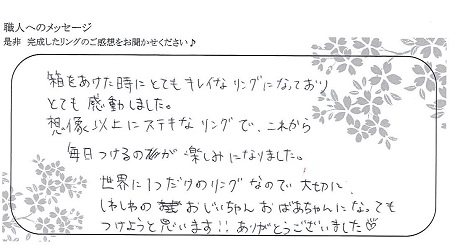 職人へのメッセージ
是非 完成したリングのご感想をお聞かせください♪
箱をあけた時にとてもキレイなリングになっており
とても感動しました。
想像以上にステキなリングで、これから
毎日つけるのが楽しみになりました。
世界に1つだけのリングなので大切に、
しわしわのおじいちゃんおばあちゃんになっても
つけようと思います!! ありがとうございました♡